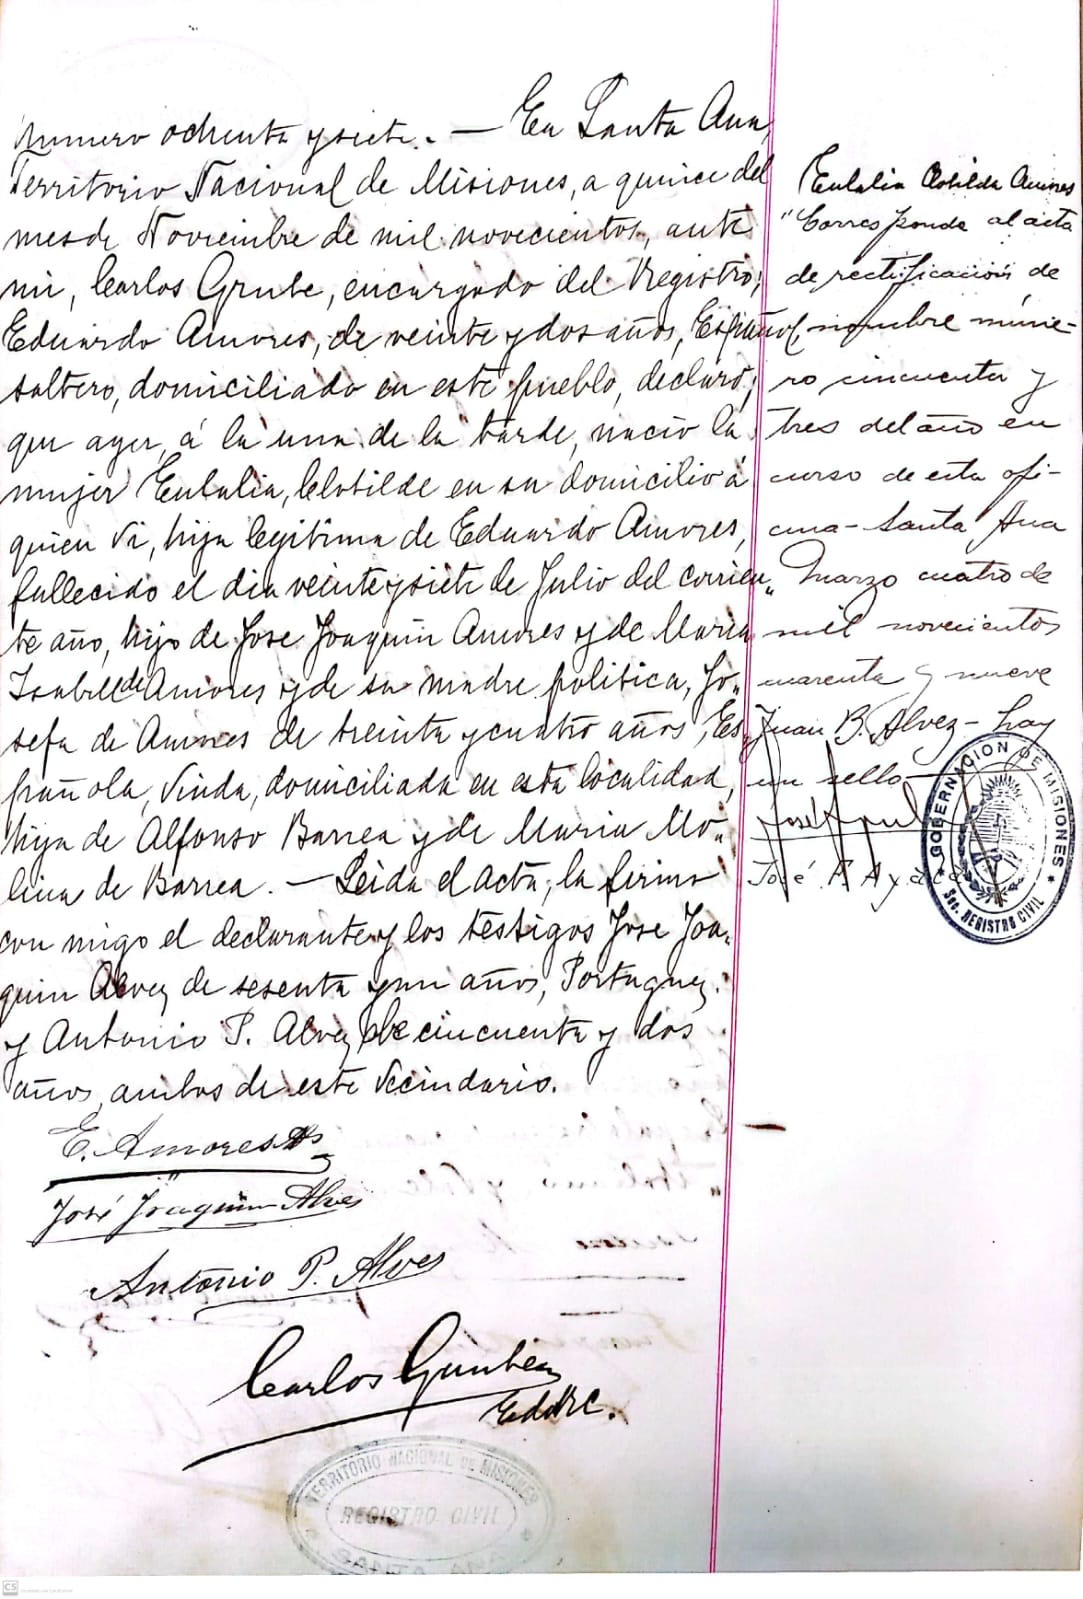 Numero ochenta y siete. — En Santa Ana,
Territorio Nacional de Misiones, a quince del
mes de Noviembre de mil novecientos, ante
mi, Carlos Grube, encargado del Registro,
Eduardo Amores, de veinte y dos años, Español,
soltero, domiciliado en este pueblo, declaró;
que ayer, á la una de la tarde, nació la
mujer Eulalia, Clotilde en su domicilio á
quien vi, hija legitima de Eduardo Amores,
fallecido el dia veinte y siete de Julio del corrien„
te año, hijo de Jose Joaquin Amores y de Maria
Isabel de Amores y de su madre politica, Jo„
sefa de Amores de treinta y cuatro años, Es„
pañola, Viuda, domiciliada en esta localidad,
hija de Alfonso Barrea y de Maria Mo„
lina de Barrea. — Leida el acta, la firma
con migo el declarante y los testigos Jose Joa„
quin Alvez de sesenta y un años, Portuguez,
y Antonio P. Alvez de cincuenta y dos
años, ambos de este vecindario.
E. Amores
José Joaquin Alves
Antonio P. Alves
Carlos
TERRITORIO NACIONAL DE MISIONES
REGISTRO CIVIL
Eulalia Clotilde Amores
"Corresponde al acta
de rectificación de
nombre núme-
ro cincuenta y
tres del año en
curso de esta ofi-
cina - Santa Ana
Marzo cuatro de
mil novecientos
cuarenta y nueve
Juan B. Alvez - hay
un sello
José A Ayala
GOBERNACION DE MISIONES
Sec. REGISTRO CIVIL
CS